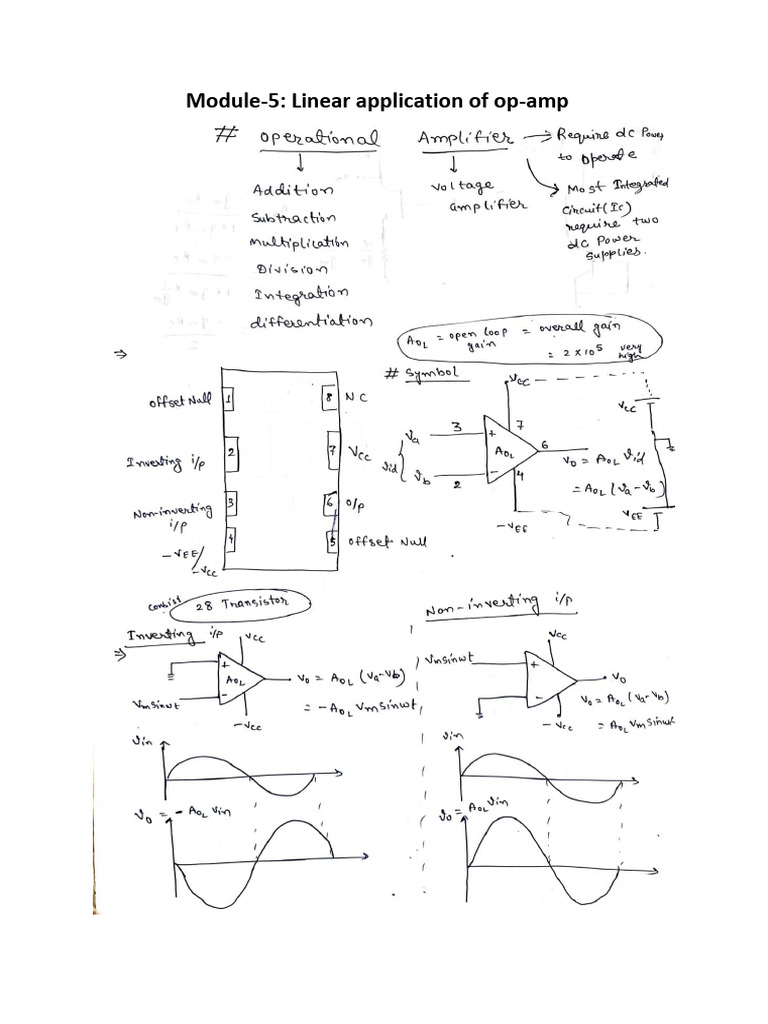 Module-5: Linear application of op-amp
# Operational Amplifier → Require dc Power
to operate
↓ ↓
Addition
Subtraction
Multiplication
Division
Integration
differentiation
Voltage
amplifier
→ Most Integrated
Circuit (Ic)
require two
dc Power
Supplies.
A_OL = open loop gain = overall gain
= 2 × 10^5 very high
⇒
offset Null 1
Inverting i/p 2
Non-inverting i/p 3
-VEE/-VCC 4
8 NC
7 VCC
6 O/p
5 offset Null
# Symbol
VCC
VCC
Va 3 + 7
Vid
Vb 2 - 4
AOL
6
Vo = AOL Vid
= AOL (Va - Vb)
-VEE
VEE
consist 28 Transistor
⇒ Inverting i/p
VCC
+
AOL
-
Vmsinwt
-VCC
Vo = AOL (Va-Vb)
= -AOL Vmsinwt
Vin
Vo = - AOL Vin
Non-inverting i/p
VCC
Vmsinwt
+
-
Vo
-VCC
Vo = AOL (Va-Vb)
= AOL Vmsinwt
Vin
Vo = AOL Vin